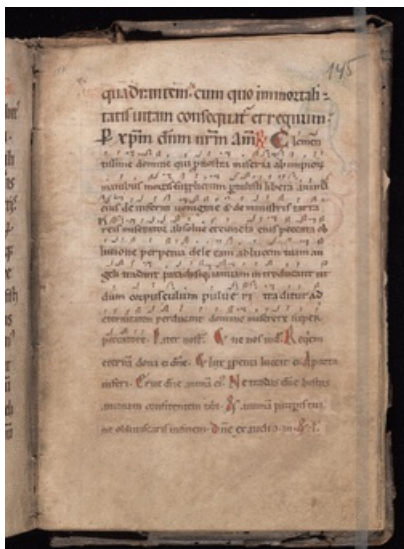 145
quadr
cum quo immortali-
tatis uitam consequat et requium
P xpm dnm nrm am R Clemen
tissime domine qui pro nostra miseria ab impior
manibus mortis supplicium libera
eius de inferni uoragine & de ministris tartari
miserator absolue & cuncta eius peccata ob
liuione perpetua dele eam ad lucem tuam an
geli trahant paradisi ianuam introducant ut
dum corpusculum puluer traditur ad
eternitatem perducant domine miserere super
peccatore. Pater nost. & ne nos ind. Requiem
eternam dona ei dne. & lux ppetua luceat ei. A porta
inferi. Erue dne animā ei. Ne tradas dne bestiis
animam confitentem tibi. & animā pauperis tui
ne obliuiscaris in finem. Dne exaudi o.